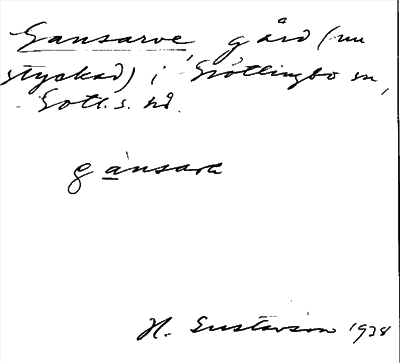 Gansarve, gård (nu
styckad) i Grötlingbo sn,
Gotl. s. hd.
gansarve
H. Gustavson 1938